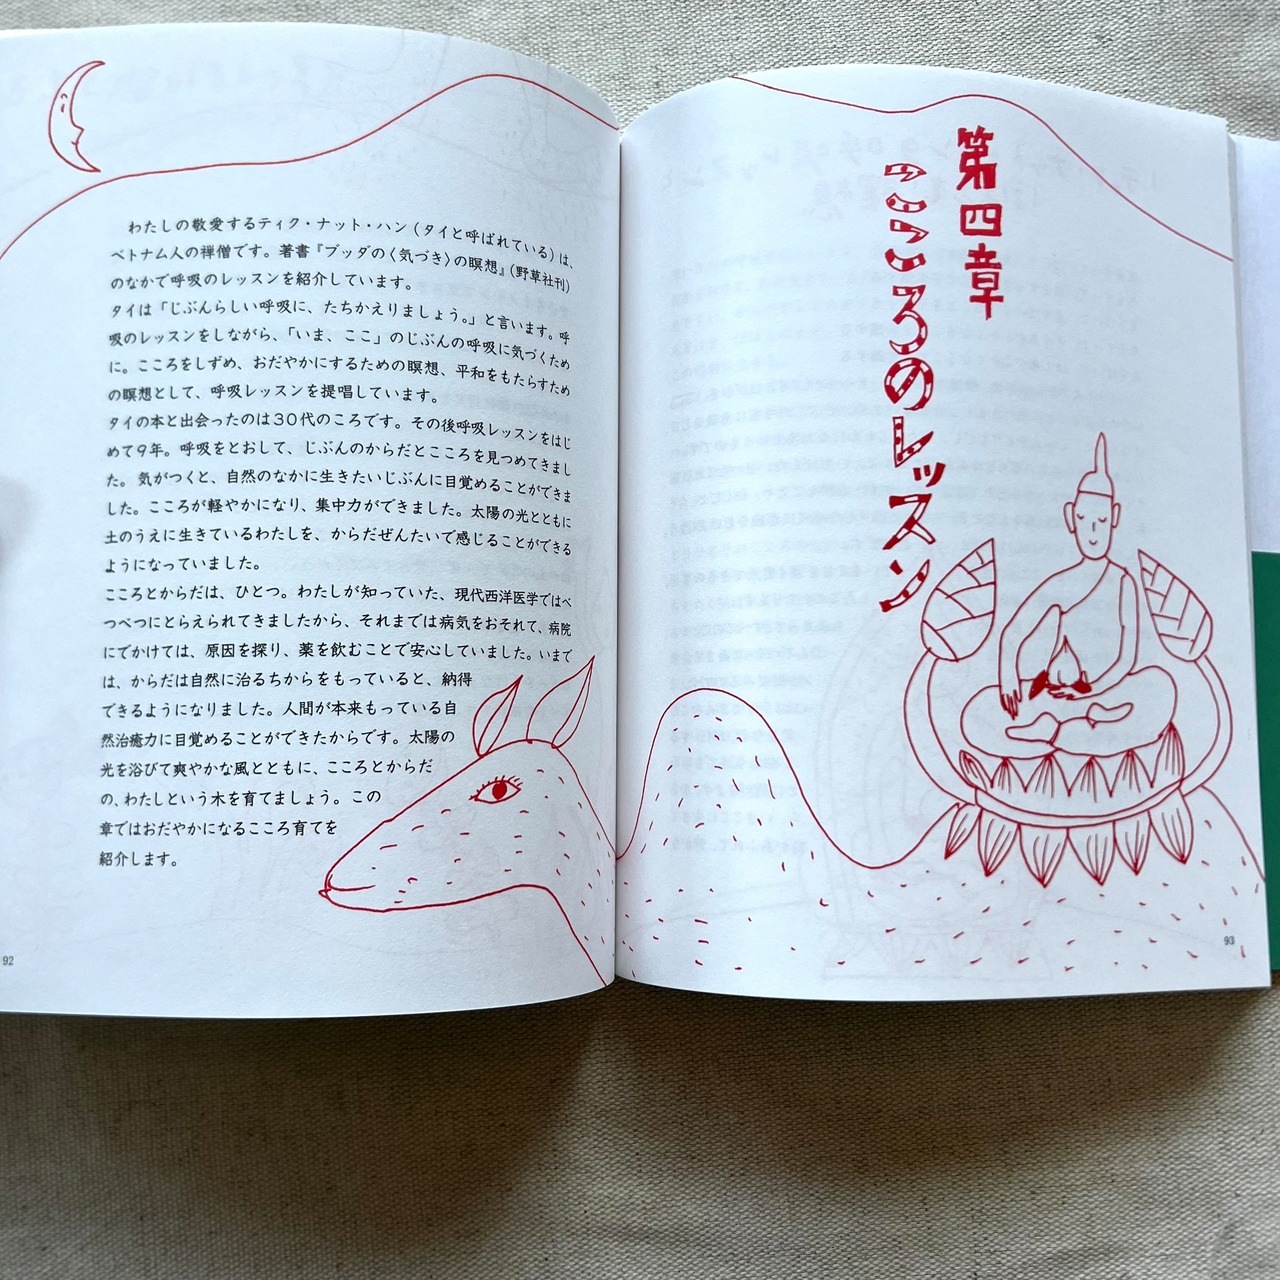 わたしの敬愛するティク・ナット・ハン(タイと呼ばれている)は、
ベトナム人の禅僧です。著書『ブッダの〈気づき〉の瞑想』(野草社刊)
のなかで呼吸のレッスンを紹介しています。
タイは「じぶんらしい呼吸に、たちかえりましょう。」と言います。呼
吸のレッスンをしながら、「いま、ここ」のじぶんの呼吸に気づくため
に。こころをしずめ、おだやかにするための瞑想、平和をもたらすため
の瞑想として、呼吸レッスンを提唱しています。
タイの本と出会ったのは30代のころです。その後呼吸レッスンをはじ
めて9年。呼吸をとおして、じぶんのからだとこころを見つめてきまし
た。気がつくと、自然のなかに生きたいじぶんに目覚めることができま
した。こころが軽やかになり、集中力ができました。太陽の光とともに
土のうえに生きているわたしを、からだぜんたいで感じることができる
ようになっていました。
こころとからだは、ひとつ。わたしが知っていた、現代西洋医学ではべ
つべつにとらえられてきましたから、それまでは病気をおそれて、病院
にでかけては、原因を探り、薬を飲むことで安心していました。いまで
は、からだは自然に治るちからをもっていると、納得
できるようになりました。人間が本来もっている自
然治癒力に目覚めることができたからです。太陽の
光を浴びて爽やかな風とともに、こころとからだ
の、わたしという木を育てましょう。この
章ではおだやかになるこころ育てを
紹介します。
92
第四章
こころのレッスン
93